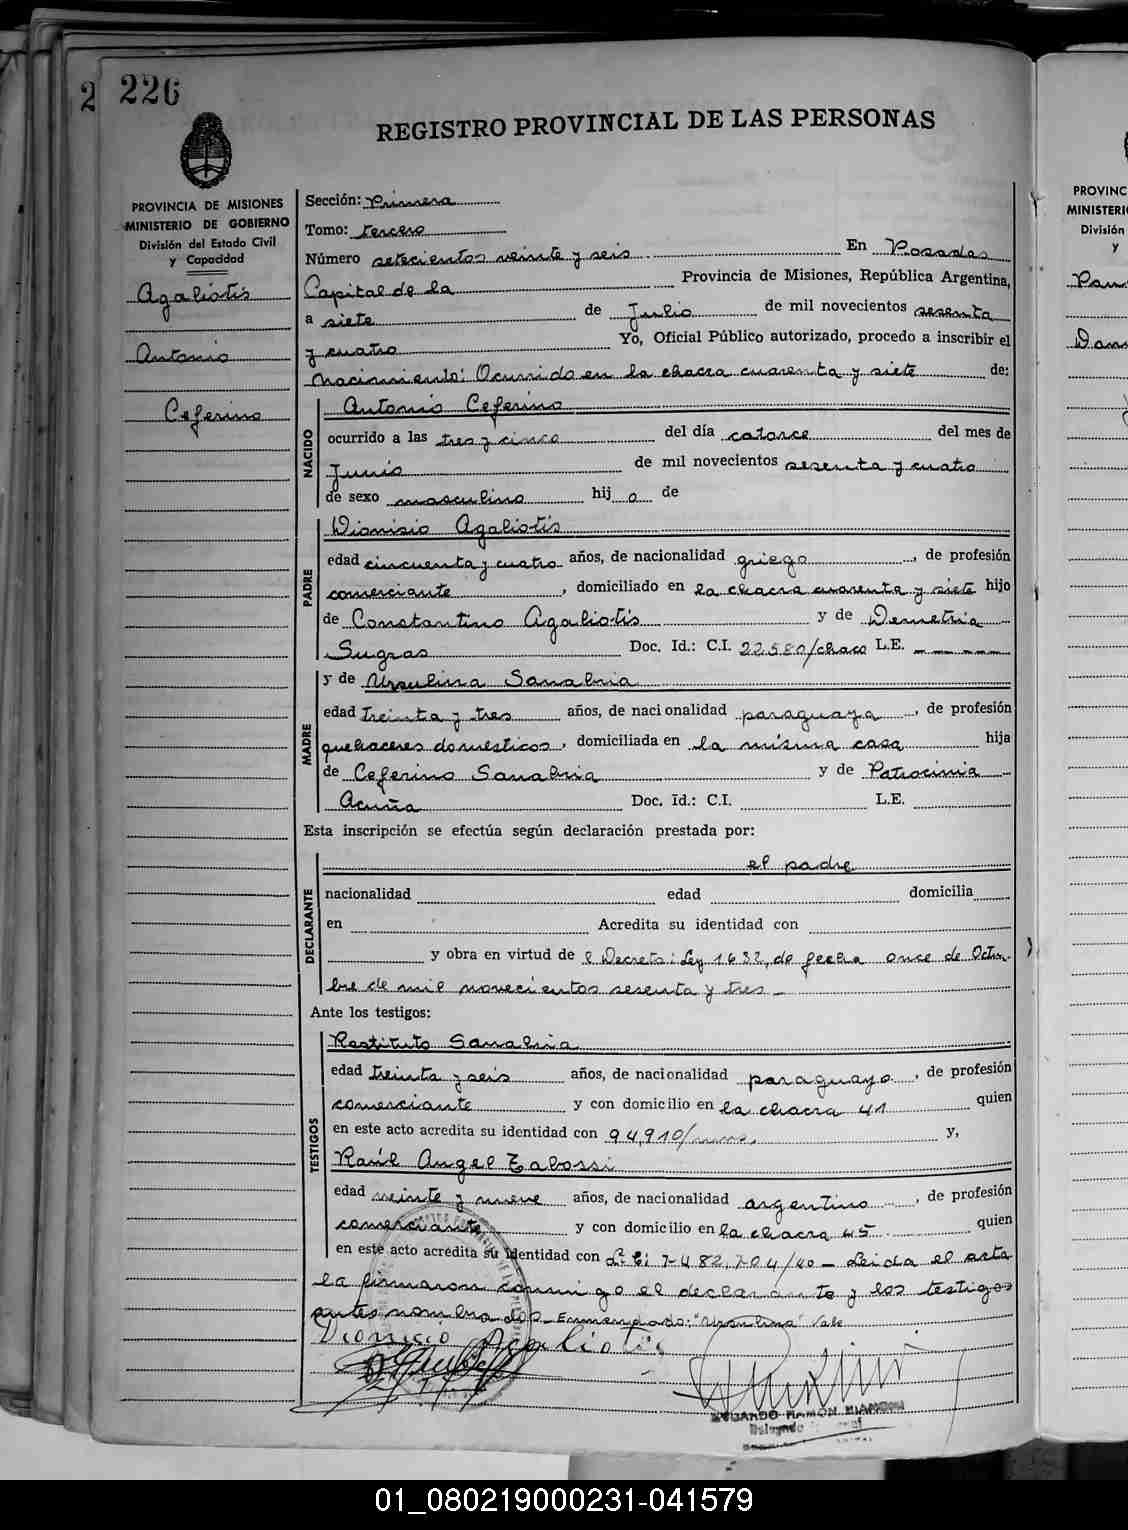 2 226
REGISTRO PROVINCIAL DE LAS PERSONAS
PROVINCIA DE MISIONES
MINISTERIO DE GOBIERNO
División del Estado Civil
y Capacidad
Agaliotis
Antonio
Ceferino
Sección: Primera
Tomo: tercero
Número setecientos veinte y seis En Posadas
Capital de la Provincia de Misiones, República Argentina,
a siete de Julio de mil novecientos sesenta
y cuatro Yo, Oficial Público autorizado, procedo a inscribir el
nacimiento: Ocurrido en la chacra cuarenta y siete de:
NACIDO
Antonio Ceferino
ocurrido a las tres y cinco del día catorce del mes de
Junio de mil novecientos sesenta y cuatro
de sexo masculino hij o de
PADRE
Dionisio Agaliotis
edad cincuenta y cuatro años, de nacionalidad griego, de profesión
comerciante, domiciliado en la chacra cuarenta y siete hijo
de Constantino Agaliotis y de Demetria
Sugras Doc. Id.: C.I. 22.580/chaco L.E. — — — —
MADRE
y de Ursulina Sanabria
edad treinta y tres años, de nacionalidad paraguaya, de profesión
quehaceres domésticos, domiciliada en la misma casa hija
de Ceferino Sanabria y de Patrocinia
Acuña Doc. Id.: C.I. L.E.
Esta inscripción se efectúa según declaración prestada por:
DECLARANTE
el padre
nacionalidad edad domicilia
en Acredita su identidad con
y obra en virtud de l Decreto: Ley 1632, de fecha once de Octu-
bre de mil novecientos sesenta y tres —
Ante los testigos:
TESTIGOS
Restituto Sanabria
edad treinta y seis años, de nacionalidad paraguayo, de profesión
comerciante y con domicilio en la chacra 41 quien
en este acto acredita su identidad con 94,910/ y,
Raúl Angel Tabossi
edad veinte y nueve años, de nacionalidad argentino, de profesión
comerciante y con domicilio en la chacra 45 quien
en este acto acredita su identidad con 7.482.704/40 — Leida el acta
la firmaron conmigo el declarante y los testigos
antes nombrados Enmendado: "Ursulina" Vale
Dionicio Agaliotis
RAMON
Delegado
PROVINC
MINISTERI
División
y
01_080219000231-041579